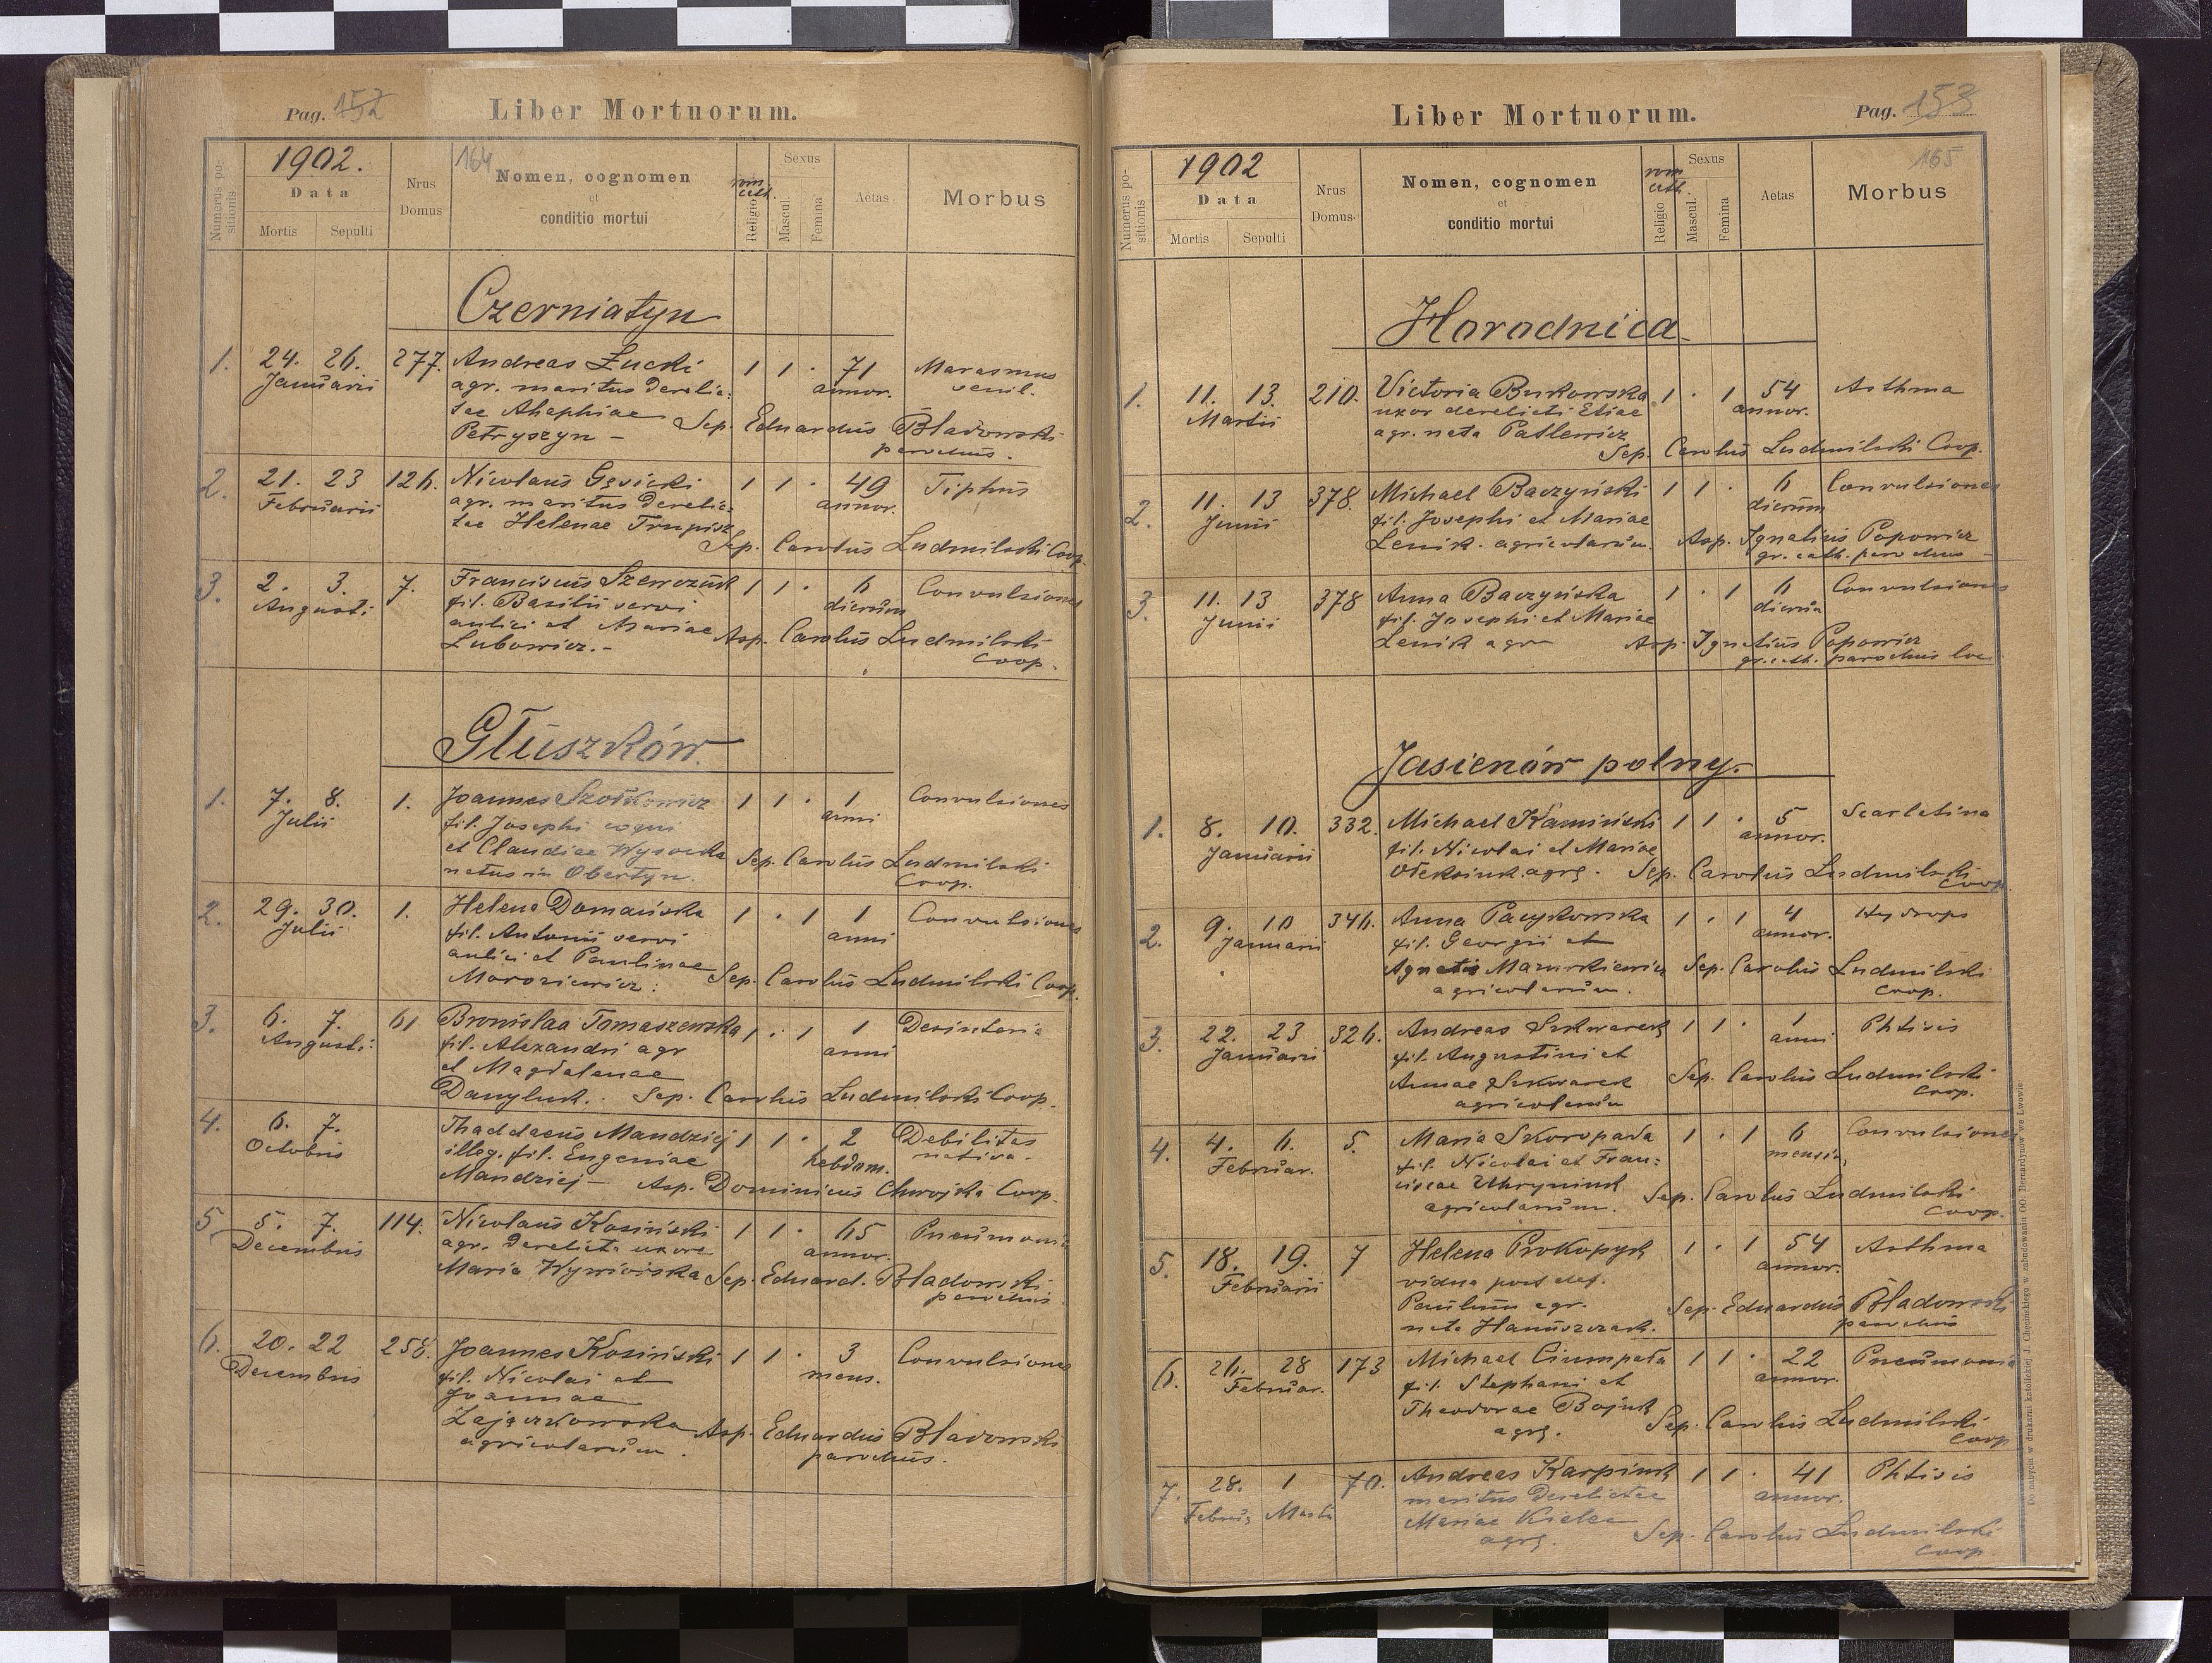 Pag. 152
Liber Mortuorum.
1902.
164
Numerus positionis
Data
Mortis
Sepulti
Nrus Domus
Nomen, cognomen
et
conditio mortui
rom cath.
Religio
Sexus
Mascul.
Femina
Aetas
Morbus
Czerniatyn
1. 24. 26. 277. Andreas Łucki 1 1 · 71 Marasmus
Januarii agr. maritus derelic= annor. senil.
tae Ahaphiae Sep. Eduardus Bladowski
Petryszyn – parochus.
2. 21. 23 126. Nicolaus Gęsicki 1 1 · 49 Tiphus
Februarii agr. maritus derelic= annor.
tae Helenae Trupisz
Sep. Carolus Ludmilski Coop.
3. 2. 3. 7. Franciscus Szewczuk 1 1 · 6 Convulsiones
Augusti fil. Basilii servi dierum
aulici et Mariae Asp. Carolus Ludmilski
Lubowicz.– Coop.
Głuszków.
1. 7. 8. 1. Joannes Szołkowicz 1 1 · 1 Convulsiones
Julii fil. Josephi coqui anni
et Claudiae Wysocka Sep. Carolus Ludmilski
natus in Obertyn. Coop.
2. 29. 30. 1. Helena Domańska 1 · 1 1 Convulsiones
Julii fil. Antonii servi anni
aulici et Paulinae
Moroziewicz. Sep. Carolus Ludmilski Coop.
3. 6. 7. 61 Bronislaa Tomaszewska 1 · 1 1 Desinteria
Augusti fil. Alexandri agr anni
et Magdalenae
Danyluk. Sep. Carolus Ludmilski Coop.
4. 6. 7. Thaddaeus Mandziej 1 1 · 2 Debilitas
Octobris illeg. fil. Eugeniae hebdom. nativa.
Mandziej – Asp. Dominicus Chwojka Coop.
5 5. 7. 114. Nicolaus Kosiński 1 1 · 65 Pneumonia
Decembris agr. derelicta uxore annor.
Maria Sep. Eduard. Bladowski
parochus
6. 20. 22 258. Joannes Kosiński 1 1 · 3 Convulsiones
Decembris fil. Nicolai et mens.
Joannae
Zajączkowska Asp. Eduardus Bladowski
agricolarum. parochus.
Liber Mortuorum.
Pag. 153
1902
165
Numerus positionis
Data
Mortis
Sepulti
Nrus Domus.
Nomen, cognomen
et
conditio mortui
rom cath.
Religio
Sexus
Mascul.
Femina
Aetas
Morbus
Horodnica
1. 11. 13. 210. Victoria Bukowska 1 · 1 54 Asthma
Martii uxor derelicti Eliae annor.
agr. nata Patlewicz
Sep. Carolus Ludmilski Coop.
2. 11. 13 378. Michael Baczyński 1 1 · 6 Convulsiones
Junii fil. Josephi et Mariae dierum
Lenik. agricolarum. Asp. Ignatius Popowicz
gr. cath. parochus
3. 11. 13 378 Anna Baczyńska 1 · 1 6 Convulsiones
Junii fil. Josephi et Mariae dierum
Lenik agr Asp. Ignatius Popowicz
gr. cath. parochus loc
Jasienów polny.
1. 8. 10. 332. Michael Kamiński 1 1 · 5 Scarlatina
Januarii fil. Nicolai et Mariae annor.
Ołeksiuk. agrg. Sep. Carolus Ludmilski
Coop.
2. 9. 10 346. Anna Pacykowska 1 · 1 4 Hydrops
Januarii fil. Georgii et annor.
Agnetis Mazurkiewicz Sep. Carolus Ludmilski
agricolarum. Coop.
3. 22. 23 326. Andreas Szkwarek 1 1 · 1 Phtisis
Januarii fil. Augustini et anni
Annae Szkwarek Sep. Carolus Ludmilski
agricolarum Coop.
4. 4. 6. 5. Maria Skoropada 1 · 1 6 Convulsiones
Februar. fil. Nicolai et Fran= mensiu
ciscae Uhryniuk Sep. Carolus Ludmilski
agricolarum. Coop.
5. 18. 19. 7 Helena Prokopyk 1 · 1 54 Asthma
Februarii vidua post def. annor.
Paulum agr. Sep. Eduardus Bladowski
nata Hanuszczak. parochus
6. 26. 28 173 Michael Ciumpała 1 1 · 22 Pneumonia
Februar. fil. Stephani et annor.
Theodorae Bojuk Sep. Carolus Ludmilski
agrg. Coop
7. 28. 1 70. Andreas Karpiuk 1 1 · 41 Phtisis
Februar Martii maritus derelictae annor.
Mariae
agrg. Sep. Carolus Ludmilski
Coop.
Do nabycia w drukarni katolickiej J. Chęcińskiego w zabudowaniu OO. Bernardynów we Lwowie